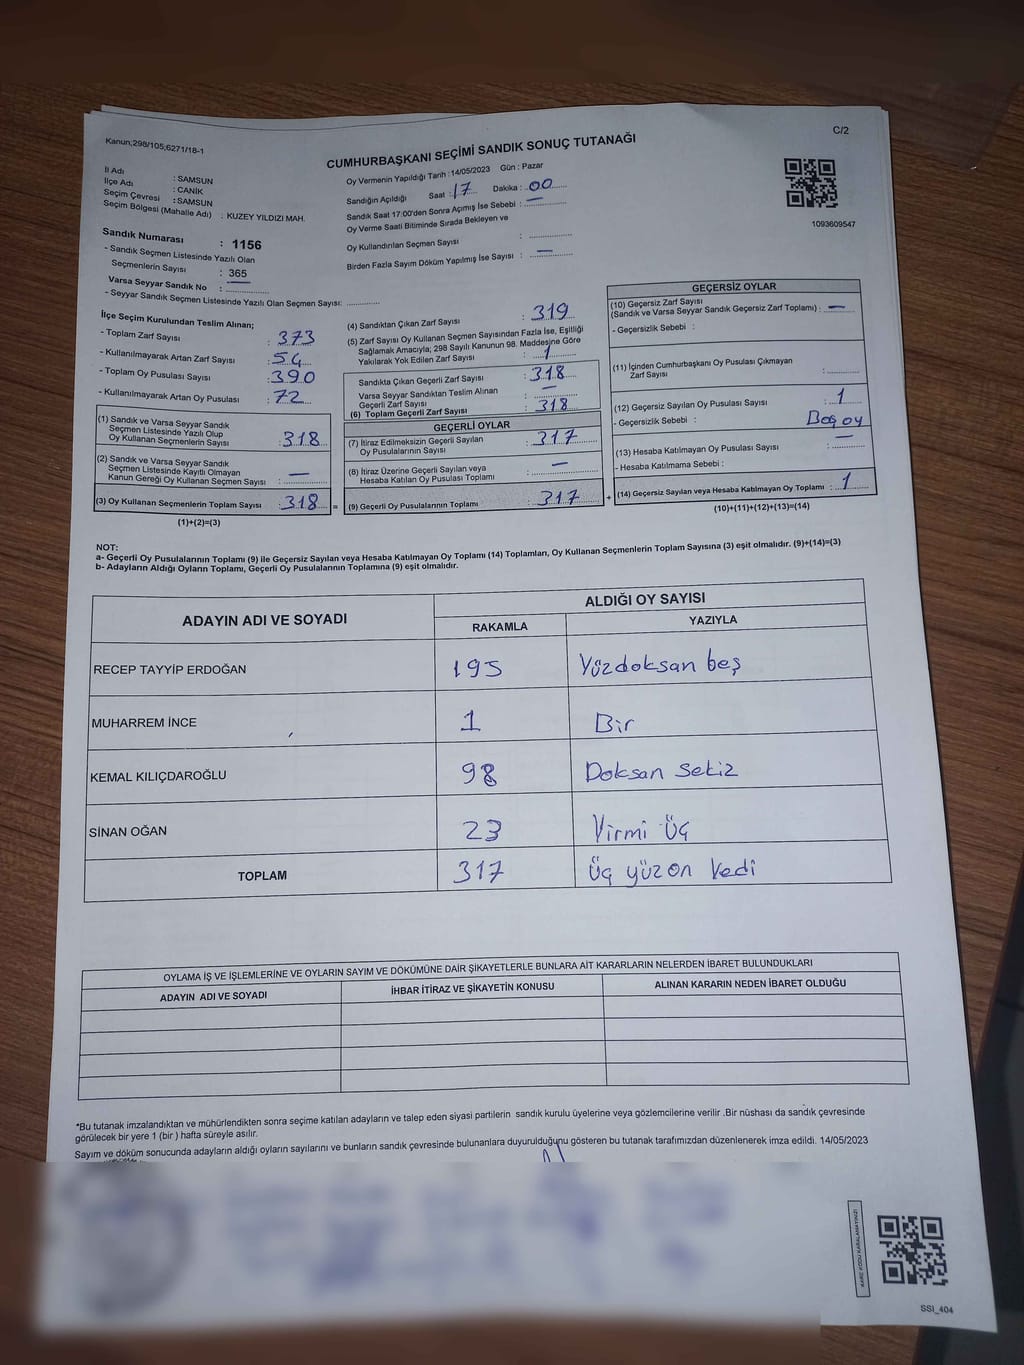 Kanun;298/105;6271/18-1
C/2
CUMHURBAŞKANI SEÇİMİ SANDIK SONUÇ TUTANAĞI
İl Adı : SAMSUN
İlçe Adı : CANİK
Seçim Çevresi : SAMSUN
Seçim Bölgesi (Mahalle Adı) : KUZEY YILDIZI MAH.
Sandık Numarası : 1156
- Sandık Seçmen Listesinde Yazılı Olan
Seçmenlerin Sayısı : 365
Varsa Seyyar Sandık No : —
- Seyyar Sandık Seçmen Listesinde Yazılı Olan Seçmen Sayısı:
Oy Vermenin Yapıldığı Tarih :14/05/2023 Gün : Pazar
Sandığın Açıldığı Saat : 17 Dakika : 00
Sandık Saat 17:00'den Sonra Açımış İse Sebebi : —
Oy Verme Saati Bitiminde Sırada Bekleyen ve
Oy Kullandırılan Seçmen Sayısı :
Birden Fazla Sayım Döküm Yapılmış İse Sayısı : —
1093609547
İlçe Seçim Kurulundan Teslim Alınan;
- Toplam Zarf Sayısı : 373
- Kullanılmayarak Artan Zarf Sayısı : 54
- Toplam Oy Pusulası Sayısı : 390
- Kullanılmayarak Artan Oy Pusulası : 72
(1) Sandık ve Varsa Seyyar Sandık
Seçmen Listesinde Yazılı Olup
Oy Kullanan Seçmenlerin Sayısı : 318
(2) Sandık ve Varsa Seyyar Sandık
Seçmen Listesinde Kayıtlı Olmayan
Kanun Gereği Oy Kullanan Seçmen Sayısı : —
(3) Oy Kullanan Seçmenlerin Toplam Sayısı : 318 =
(1)+(2)=(3)
(4) Sandıktan Çıkan Zarf Sayısı : 319
(5) Zarf Sayısı Oy Kullanan Seçmen Sayısından Fazla İse, Eşitliği
Sağlamak Amacıyla; 298 Sayılı Kanunun 98. Maddesine Göre
Yakılarak Yok Edilen Zarf Sayısı : 1
Sandıkta Çıkan Geçerli Zarf Sayısı : 318
Varsa Seyyar Sandıktan Teslim Alınan
Geçerli Zarf Sayısı : —
(6) Toplam Geçerli Zarf Sayısı : 318
GEÇERLİ OYLAR
(7) İtiraz Edilmeksizin Geçerli Sayılan
Oy Pusulalarının Sayısı : 317
(8) İtiraz Üzerine Geçerli Sayılan veya
Hesaba Katılan Oy Pusulası Toplamı : —
(9) Geçerli Oy Pusulalarının Toplamı : 317 +
GEÇERSİZ OYLAR
(10) Geçersiz Zarf Sayısı
(Sandık ve Varsa Seyyar Sandık Geçersiz Zarf Toplamı) : —
- Geçersizlik Sebebi :
(11) İçinden Cumhurbaşkanı Oy Pusulası Çıkmayan
Zarf Sayısı :
(12) Geçersiz Sayılan Oy Pusulası Sayısı : 1
- Geçersizlik Sebebi : Boş oy
(13) Hesaba Katılmayan Oy Pusulası Sayısı : —
- Hesaba Katılmama Sebebi :
(14) Geçersiz Sayılan veya Hesaba Katılmayan Oy Toplamı : 1
(10)+(11)+(12)+(13)=(14)
NOT:
a- Geçerli Oy Pusulalarının Toplamı (9) ile Geçersiz Sayılan veya Hesaba Katılmayan Oy Toplamı (14) Toplamları, Oy Kullanan Seçmenlerin Toplam Sayısına (3) eşit olmalıdır. (9)+(14)=(3)
b- Adayların Aldığı Oyların Toplamı, Geçerli Oy Pusulalarının Toplamına (9) eşit olmalıdır.
ADAYIN ADI VE SOYADI ALDIĞI OY SAYISI
RAKAMLA YAZIYLA
RECEP TAYYİP ERDOĞAN 195 Yüzdoksan beş
MUHARREM İNCE 1 Bir
KEMAL KILIÇDAROĞLU 98 Doksan Sekiz
SİNAN OĞAN 23 Yirmi Üç
TOPLAM 317 Üç yüz on Yedi
OYLAMA İŞ VE İŞLEMLERİNE VE OYLARIN SAYIM VE DÖKÜMÜNE DAİR ŞİKAYETLERLE BUNLARA AİT KARARLARIN NELERDEN İBARET BULUNDUKLARI
ADAYIN ADI VE SOYADI İHBAR İTİRAZ VE ŞİKAYETİN KONUSU ALINAN KARARIN NEDEN İBARET OLDUĞU
*Bu tutanak imzalandıktan ve mühürlendikten sonra seçime katılan adayların ve talep eden siyasi partilerin sandık kurulu üyelerine veya gözlemcilerine verilir .Bir nüshası da sandık çevresinde
görülecek bir yere 1 (bir ) hafta süreyle asılır.
Sayım ve döküm sonucunda adayların aldığı oyların sayılarını ve bunların sandık çevresinde bulunanlara duyurulduğunu gösteren bu tutanak tarafımızdan düzenlenerek imza edildi. 14/05/2023
KARE KODU KARALAMAYINIZ!
SSI_404